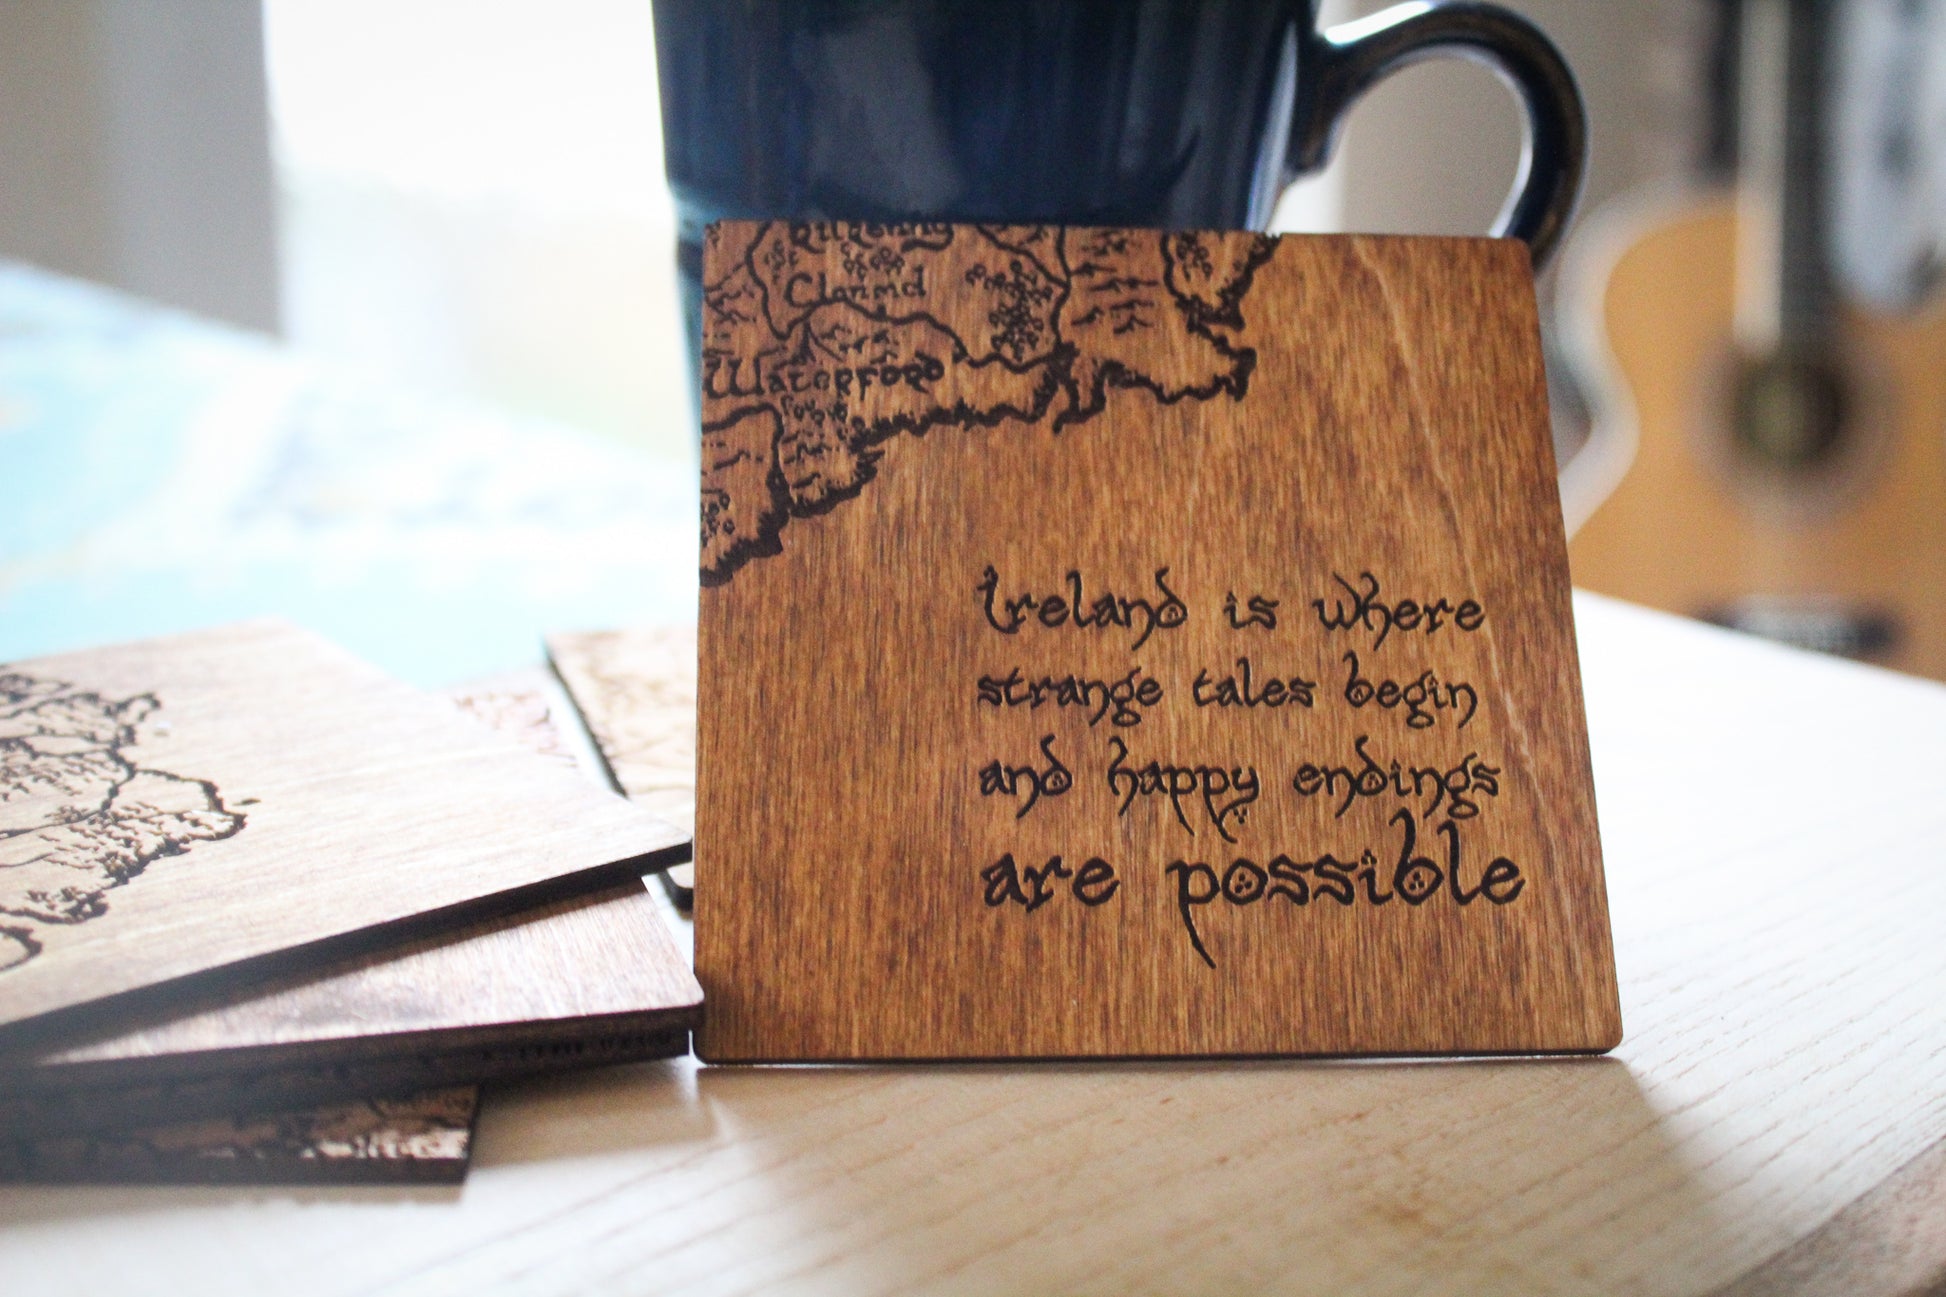 Kilkenny
Clonmel
Waterford
Ireland is where
strange tales begin
and happy endings
are possible